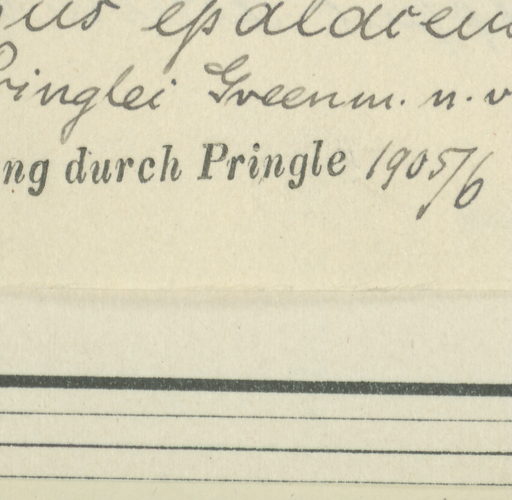 epaldiem
ringlei Greenm. n. v
ng durch Pringle 1905/6